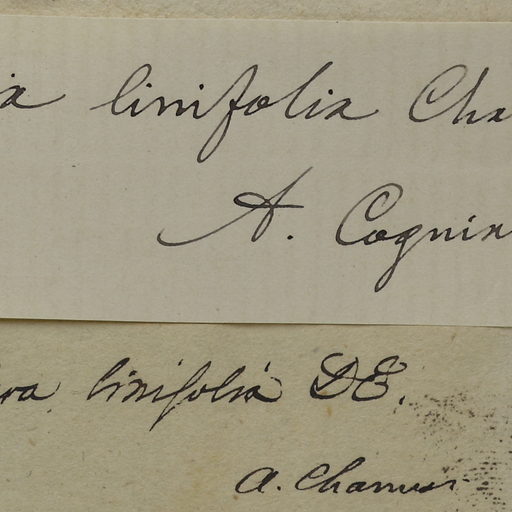 ia linifolia Cha
A. Cognia
va linifolia DC.
A. Chamiss